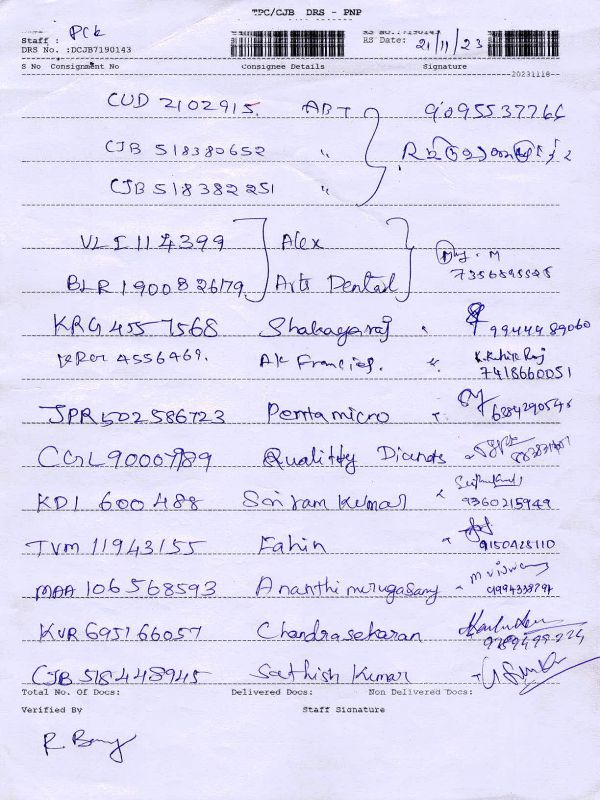 TPC/CJB DRS - PNP
Staff : PCK
DRS No. :DCJB7190143
RS Date: 21/11/23
S No Consignment No Consignee Details Signature
20231118
CUD 2102915. ABT 9095537766
CJB 518380652 "
CJB 518382251 "
VLI 114399 Alex
BLR 1900826179 Arts Dental 7356895525
KRG 4557568 Shakagaraj 9944489060
4556469. AK Francies. K. Kathir Raj
7418660051
JPR 502586723 Pentamicro 6284290546
CGL 9000789 Quality Dianats
KDI 600488 Sairam Kumar 9360215949
TVM 11943155 Fahin 9150428110
MAA 106568593 Ananthi murugasamy
KVR 695166057 Chandrasekaran 9789499224
CJB 518448945 Sathish Kumar
Total No. Of Docs: Delivered Docs: Non Delivered Docs:
Verified By Staff Signature